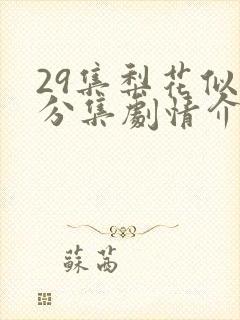 29集梨花似
分集劇情介
蘇茜